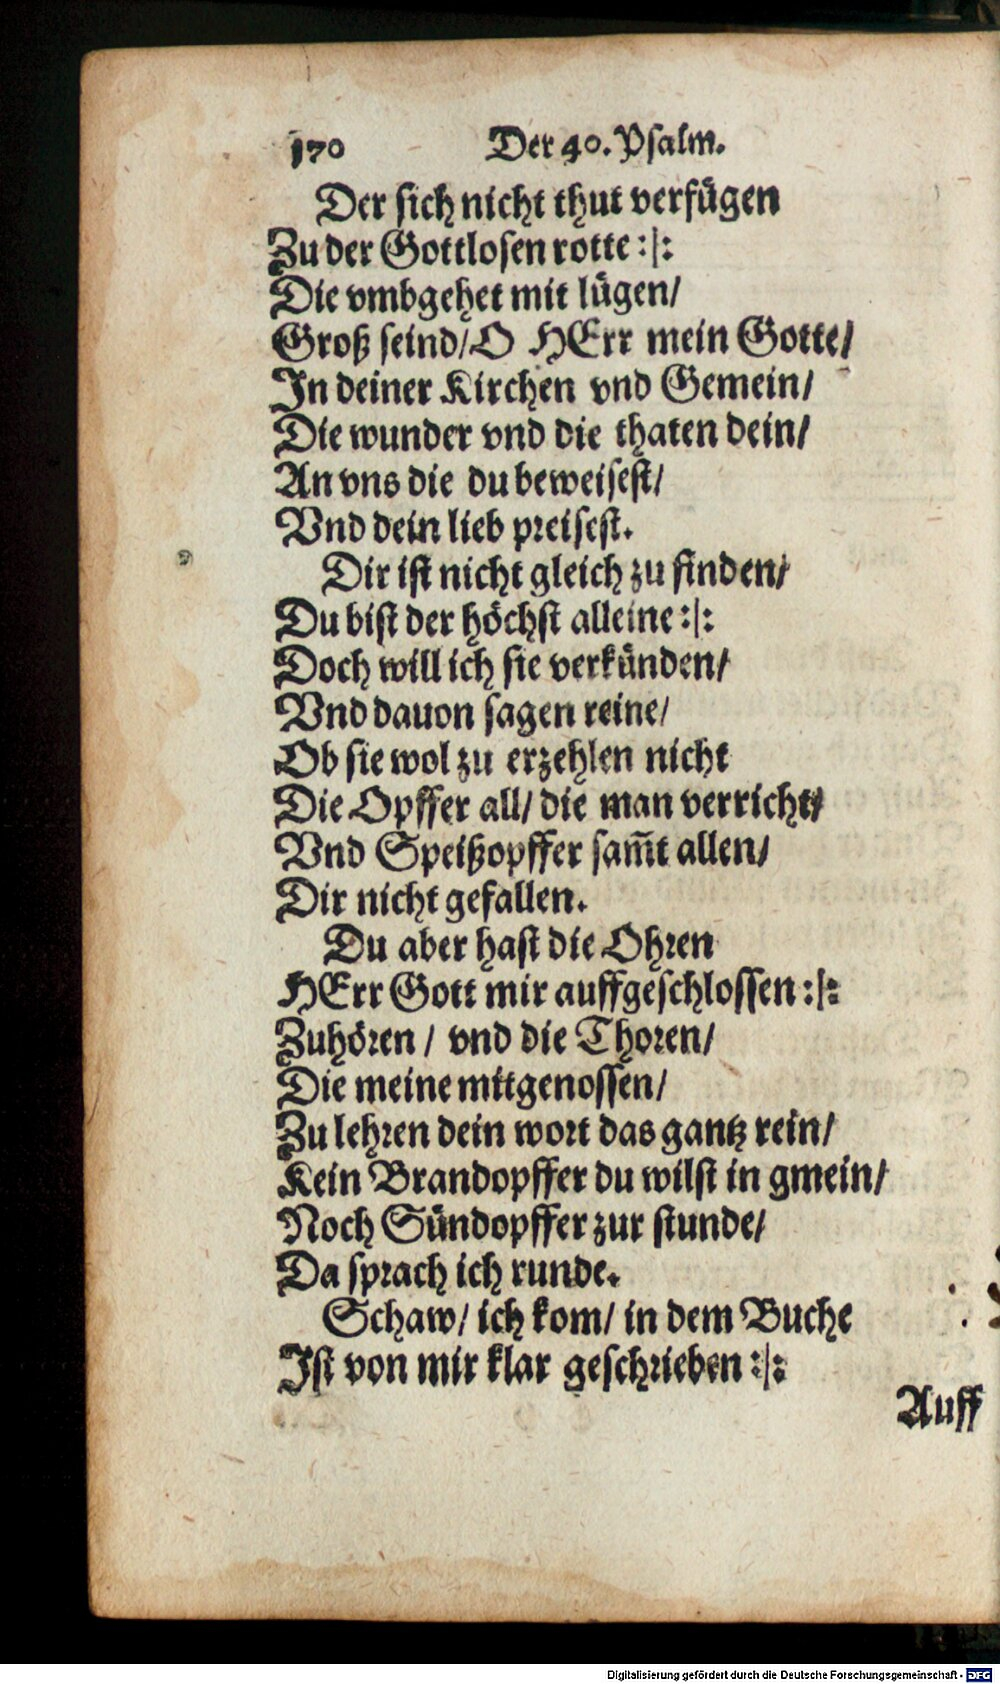 170 Der 40. Psalm.
Der sich nicht thut verfügen
Zu der Gottlosen rotte :|:
Die vmbgehet mit lügen/
Groß seind/ O HErr mein Gotte/
In deiner Kirchen vnd Gemein/
Die wunder vnd die thaten dein/
An vns die du beweisest/
Vnd dein lieb preisest.
Dir ist nicht gleich zu finden/
Du bist der höchst alleine :|:
Doch will ich sie verkünden/
Vnd dauon sagen reine/
Ob sie wol zu erzehlen nicht
Die Opffer all/ die man verricht/
Vnd Speißopffer sam̃t allen/
Dir nicht gefallen.
Du aber hast die Ohren
HErr Gott mir auffgeschlossen :|:
Zuhören / vnd die Thoren/
Die meine mitgenossen/
Zu lehren dein wort das gantz rein/
Kein Brandopffer du wilst in gmein/
Noch Sündopffer zur stunde/
Da sprach ich runde.
Schaw/ ich kom/ in dem Buche
Ist von mir klar geschrieben :|:
Auff
Digitalisierung gefördert durch die Deutsche Forschungsgemeinschaft - DFG